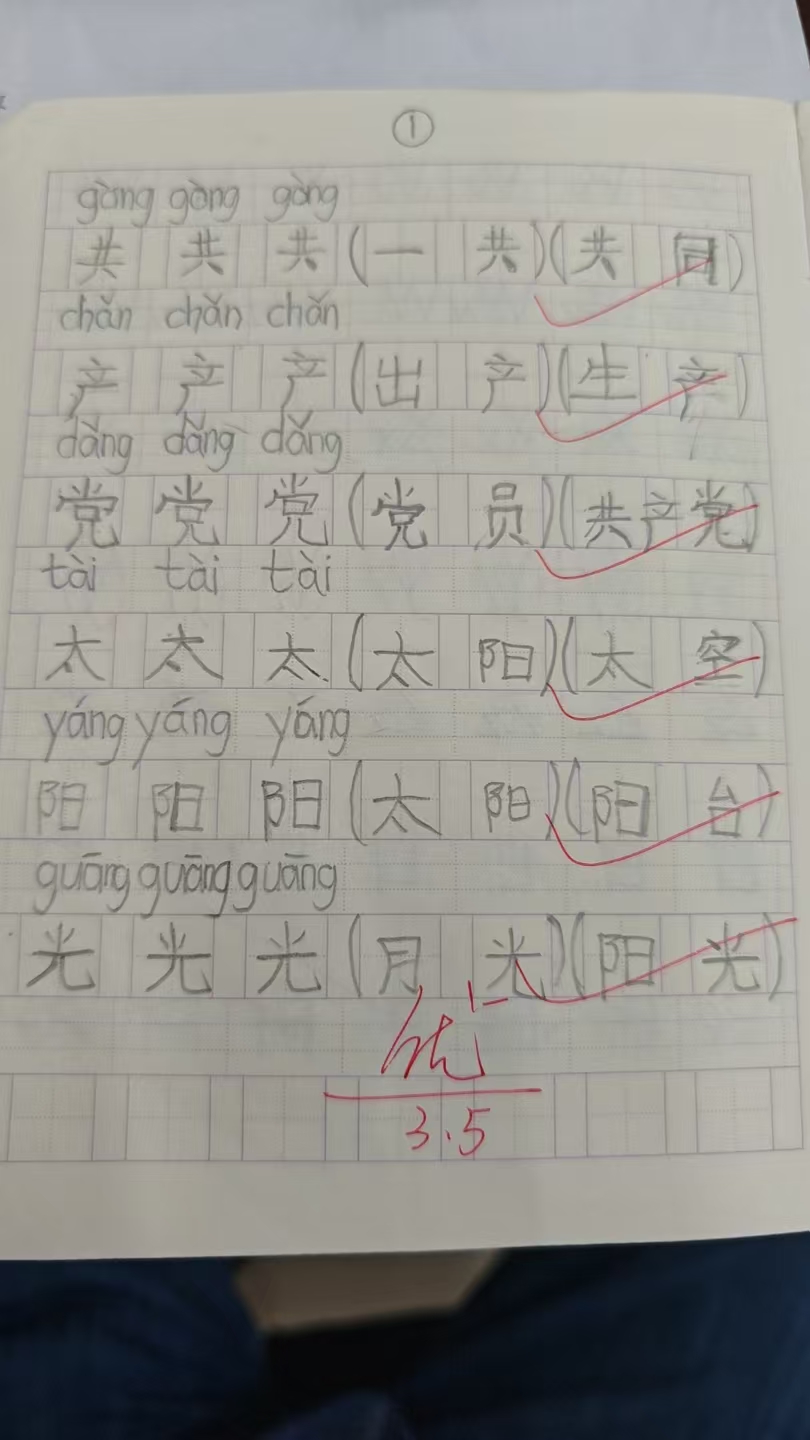 ①
gòng gòng gòng
共 共 共 (一 共)(共 同)
chǎn chǎn chǎn
产 产 产 (出 产)(生 产)
dǎng dǎng dǎng
党 党 党 (党 员)(共产党)
tài tài tài
太 太 太 (太 阳)(太 空)
yáng yáng yáng
阳 阳 阳 (太 阳)(阳 台)
guāng guāng guāng
光 光 光 (月 光)(阳 光)
优
3.5